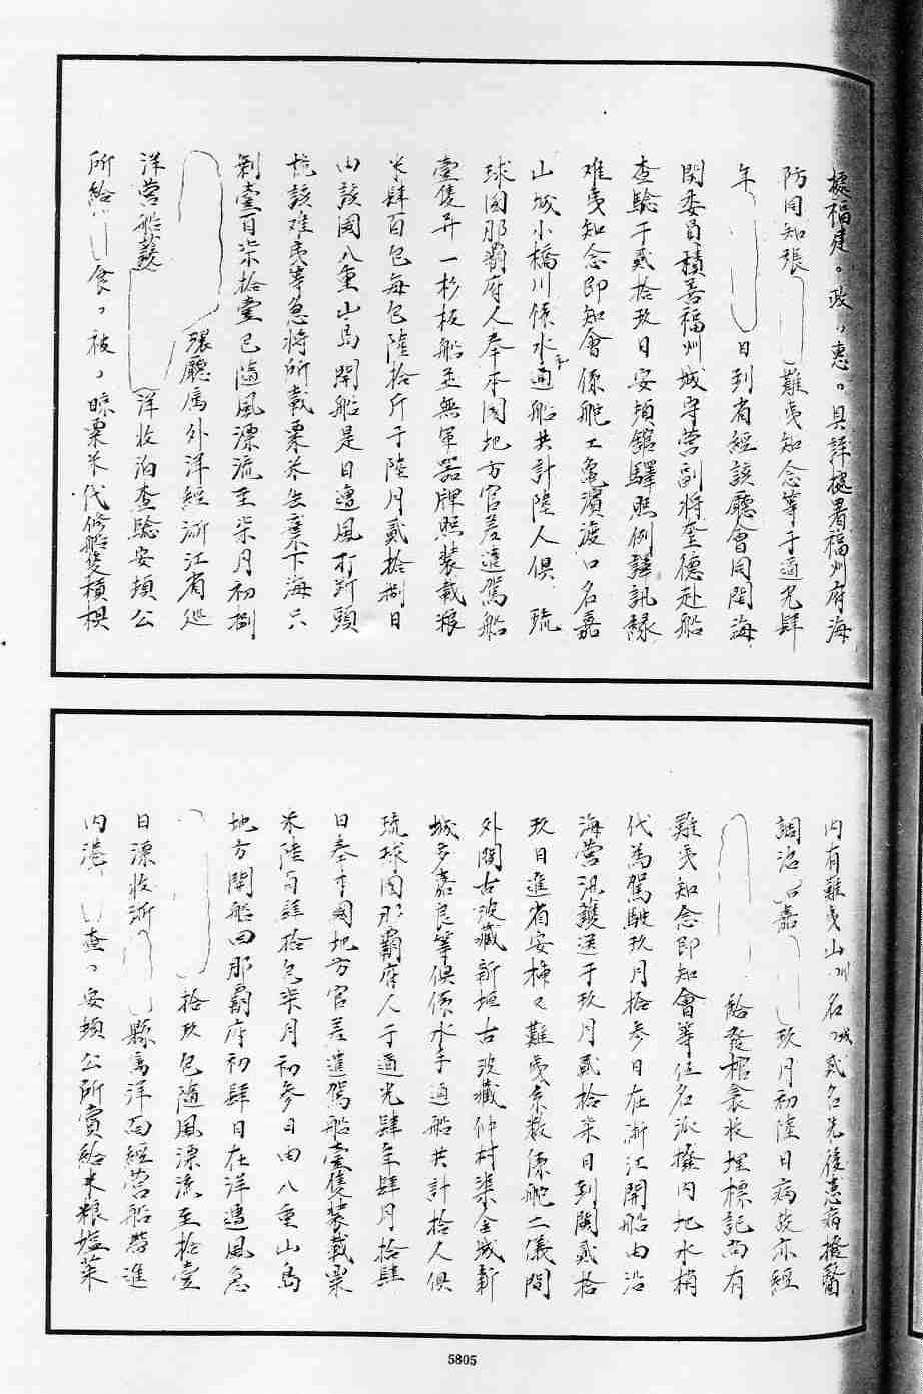 據福建。政、惠。具詳據署福州府海
防同知張 難夷知念等于道光肆
年 日到省經該廳會同閩海
関委員積善福州城守營副將 德赴船
查驗于貳拾玖日安頓館驛照例譯訊緣
难夷知念即知會係舵工亀濱渡口名嘉
山城小橋川係水手通船共計陸人俱 琉
球國那覇府人奉本國地方官差遣駕船
壹隻并一杉板船並無軍器牌照裝載粮
米肆百包每包陸拾斤于陸月貳拾捌日
由該國八重山島開船是日遭風打斷頭
桅該难夷等急將所載粟米丟棄下海只
剩壹百柒拾壹包隨風漂流至柒月初捌
環廳属外洋經浙江省巡
洋營船護 洋收泊查驗安頓公
所給 食、被、晾粟米代修船隻槓椇
内有難夷山川名城貳名先後患病撥醫
調治名嘉 玖月初陸日病故亦經
給發棺衾收埋標記尚有
難夷知念即知會等伍名派撥内地水梢
代為駕駛玖月拾参日在浙江開船由沿
海營汛護送于玖月貳拾柒日到関貳拾
玖日進省安揷又難夷系数係舵工儀間
外間古波藏新垣古波藏仲村渠金城新
城多嘉良等俱係水手通船共計拾人俱
琉球國那覇府人于道光肆年肆月拾肆
日奉本國地方官差遣駕船壹隻裝載粟
米陸百肆拾包柒月初参日由八重山島
地方開船回那覇府初肆日在洋遭風急
拾玖包隨風漂流至拾壹
日漂收浙 縣属洋面經營船帶進
内港 查、安頓公所賞給米粮塩菜
5805